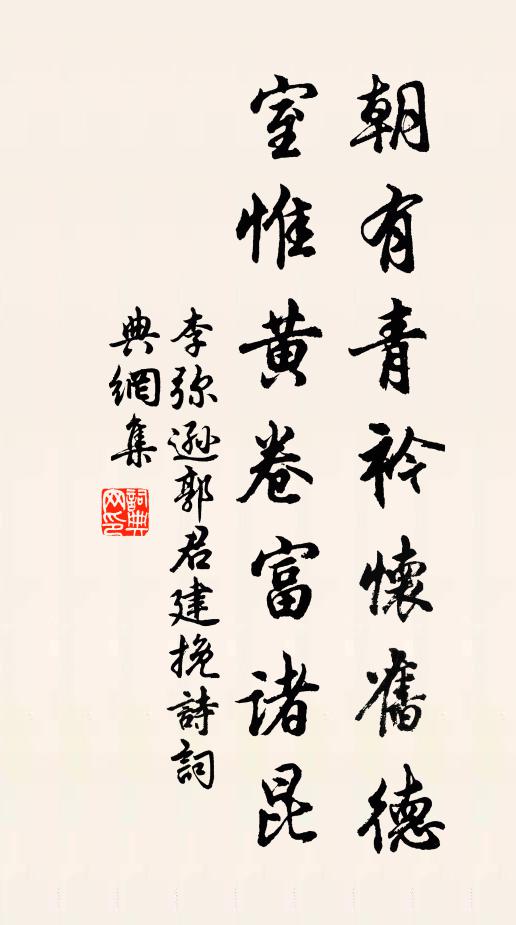 朝有青衿懷舊德
室惟黄卷富諸昆
李弥遜郭君建挽詩詞
典網集
詞典網印